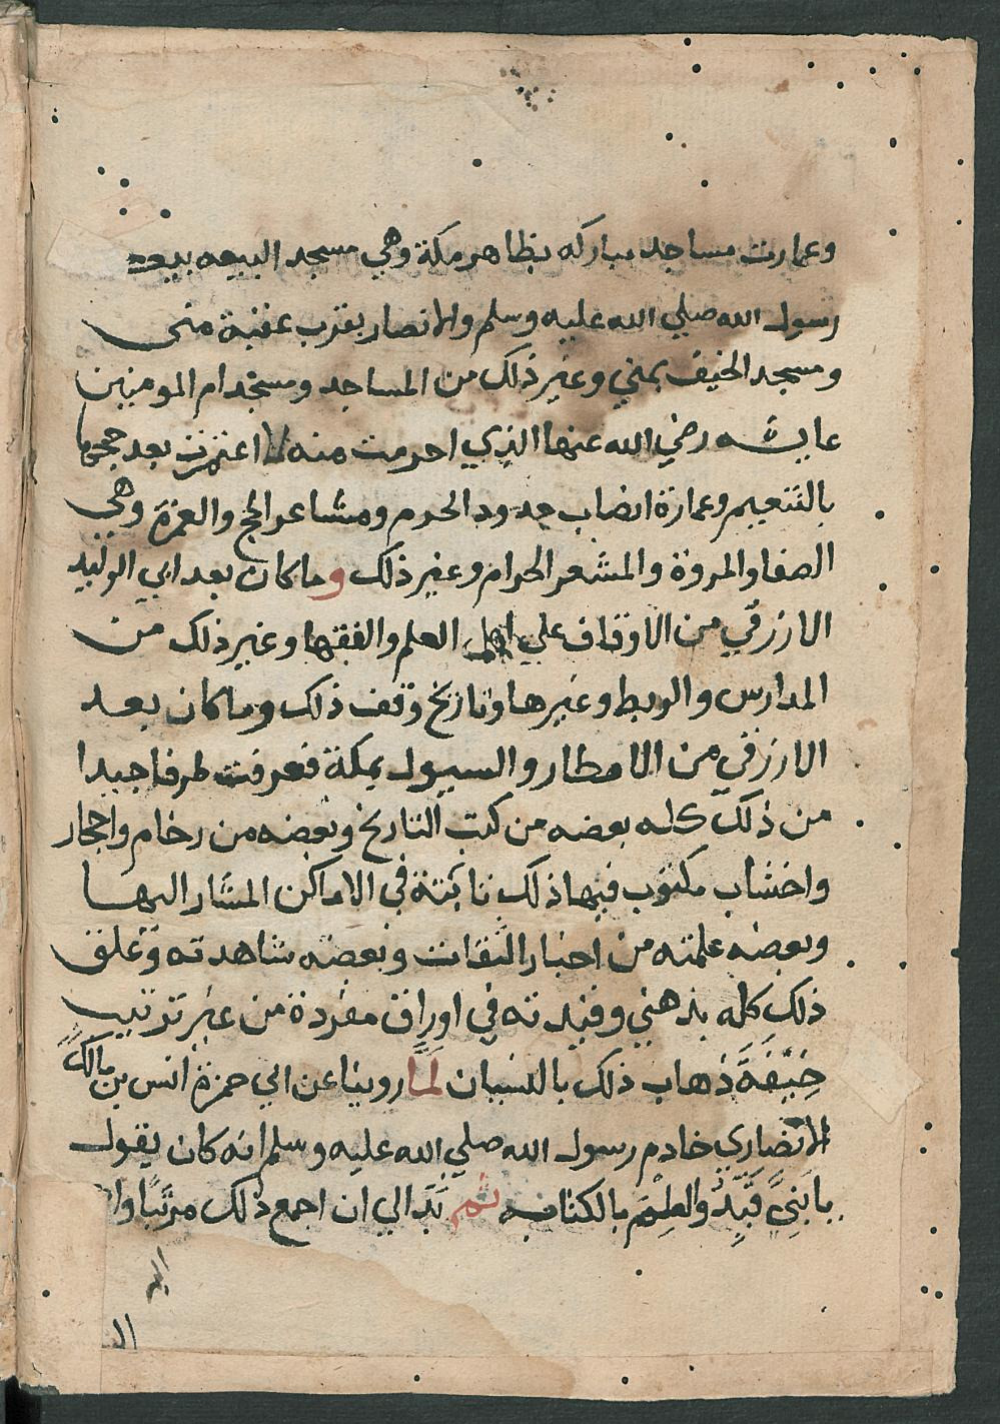 وعمارت مساجد مباركه بظاهر مكة وهي مسجد البيعه بيعة
رسول الله صلي الله عليه وسلم والانصار بقرب عقبة منى
ومسجد الخيف بمني وغير ذلك من المساجد ومسجد ام المومنين
عايشه رضي الله عنها الذي احرمت منه لما اعتمرت بعد حجها
بالتنعيم وعمارة انصاب حدود الحرم ومشاعر الحج والعمرة وهي
الصفا والمروة والمشعر الحرام وغير ذلك وما كان بعد ابي الوليد
الازرقي من الاوقاف علي اهل العلم والفقها وغير ذلك من
المدارس والربط وغيرها وتاريخ وقف ذلك وما كان بعد
الازرقي من الامطار والسيول بمكة فعرفت طرفا جيدا
من ذلك كله بعضه من كتب التاريخ وبعضه من رخام واحجار
واخشاب مكتوب فيها ذلك ثابتة في الاماكن المشار اليها
وبعضه علمته من اخبار الثقات وبعضه شاهدته وعلق
ذلك كله بذهني وقيدته في اوراق مفردة من غير ترتيب
خيفة ذهاب ذلك بالنسيان لما روينا عن ابي حمزة انس بن مالك
الانصاري خادم رسول الله صلي الله عليه وسلم انه كان يقول
يا بني قيدوا العلم بالكتابه ثم بدا لي ان اجمع ذلك مرتبا